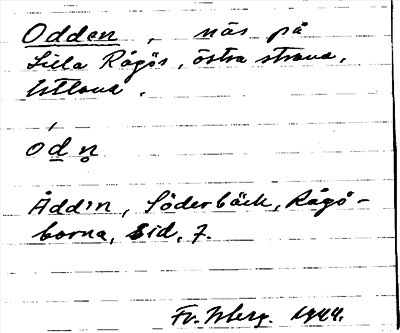 Odden, näs på
Lilla Rågös, östra strand,
Estland.
odn̥
Åddn, Söderbäck, Rågö-
borna, sid. 7.
Fr. Isberg. 1944.